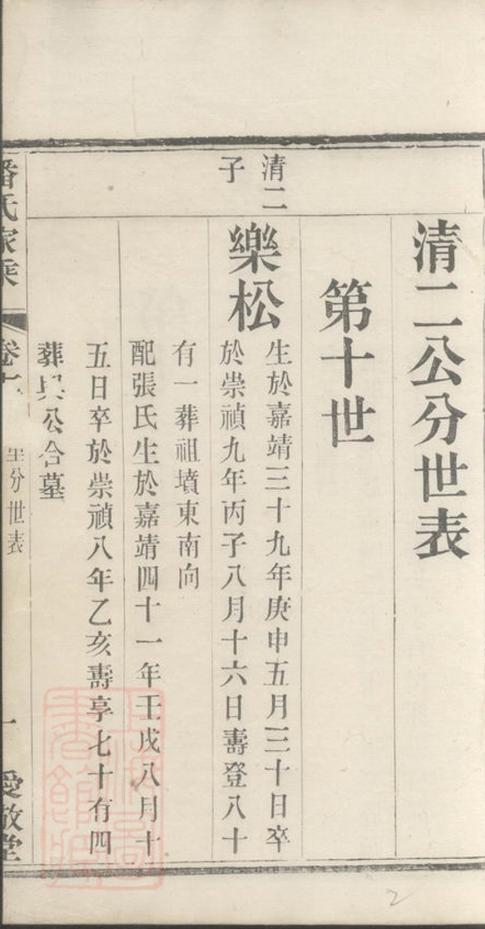 清二公分世表
第十世
清二
子
樂松
生於嘉靖三十九年庚申五月三十日卒
於崇禎九年丙子八月十六日壽登八十
有一葬祖墳東南向
配張氏生於嘉靖四十一年壬戌八月十
五日卒於崇禎八年乙亥壽享七十有四
葬與公合墓
潘氏家乘
卷十
分世表
一
愛敬堂
2